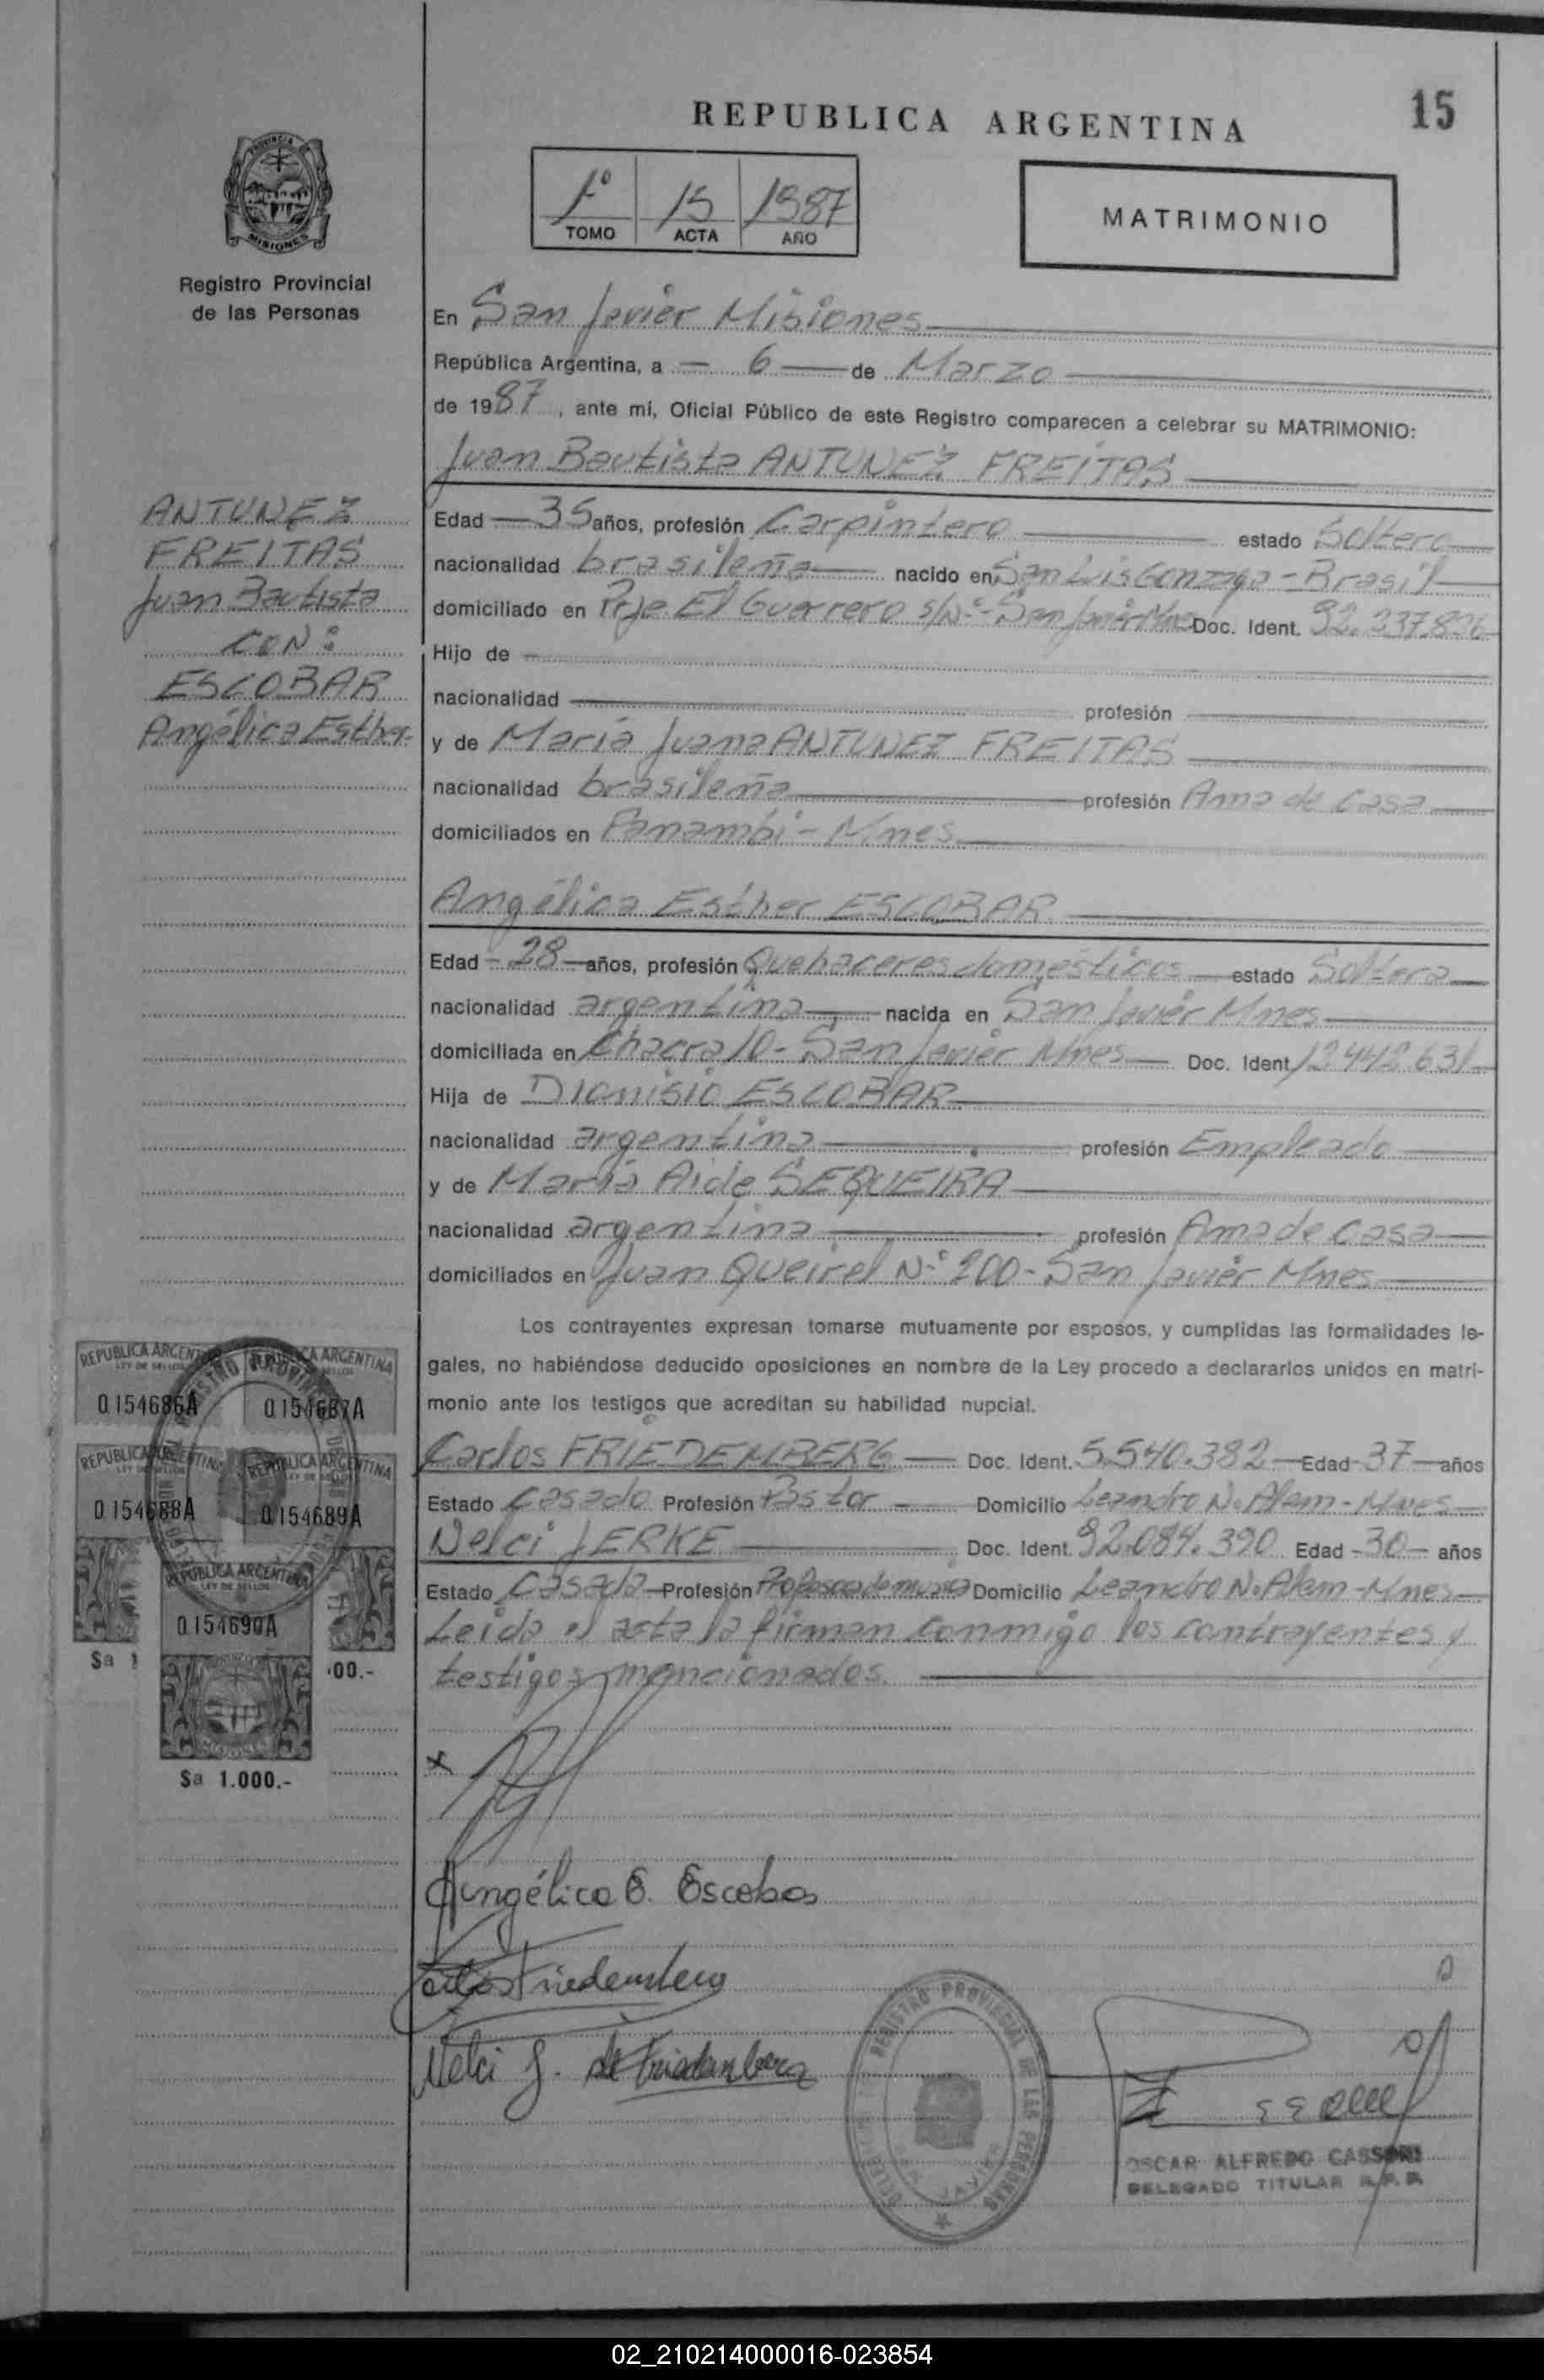 REPUBLICA ARGENTINA
15
1º 15 1987
TOMO ACTA AÑO
MATRIMONIO
MISIONES
Registro Provincial
de las Personas
En San Javier Misiones
República Argentina, a 6 de Marzo
de 1987, ante mí, Oficial Público de este Registro comparecen a celebrar su MATRIMONIO:
Juan Bautista ANTUNEZ FREITAS
ANTUNEZ
FREITAS
Juan Bautista
CON:
ESCOBAR
Angélica Esther
Edad 35 años, profesión Carpintero estado Soltero
nacionalidad brasileña nacido en San Luis Gonzaga - Brasil
domiciliado en Pje. El Guerrero s/Nº - San Javier Mnes Doc. Ident. 92.237.826
Hijo de
nacionalidad profesión
y de María Juana ANTUNEZ FREITAS
nacionalidad brasileña profesión Ama de casa
domiciliados en Panambi - Mnes
Angélica Esther ESCOBAR
Edad 28 años, profesión Quehaceres domésticos estado Soltera
nacionalidad argentina nacida en San Javier Mnes
domiciliada en Chacra 10 - San Javier Mnes Doc. Ident 12.442.631
Hija de Dionisio ESCOBAR
nacionalidad argentina profesión Empleado
y de María Aide SEQUEIRA
nacionalidad argentina profesión Ama de casa
domiciliados en Juan Queirel Nº 200 - San Javier Mnes
Los contrayentes expresan tomarse mutuamente por esposos, y cumplidas las formalidades le-
gales, no habiéndose deducido oposiciones en nombre de la Ley procedo a declararlos unidos en matri-
monio ante los testigos que acreditan su habilidad nupcial.
REPUBLICA ARGENTINA
LEY DE SELLOS
0154686A 0154687A
REPUBLICA ARGENTINA
0154688A 0154689A
REPUBLICA ARGENTINA
LEY DE SELLOS
0154690A
$a 1 00.-
$a 1.000.-
Carlos FRIEDEMBERG Doc. Ident. 5.540.382 Edad 37 años
Estado Casado Profesión Pastor Domicilio Leandro N. Alem - Mnes
Nelci JERKE Doc. Ident. 92.084.390 Edad 30 años
Estado Casada Profesión Profesora de musica Domicilio Leandro N. Alem - Mnes
Leida el acta la firman conmigo los contrayentes y
testigos mencionados.
x
Angélica E. Escobar
Carlos Friedemberg
Nelci J. de Friedemberg
REGISTRO PROVINCIAL DE LAS PERSONAS
SAN JAVIER
OSCAR ALFREDO
DELEGADO TITULAR R.P.P.
02_210214000016-023854